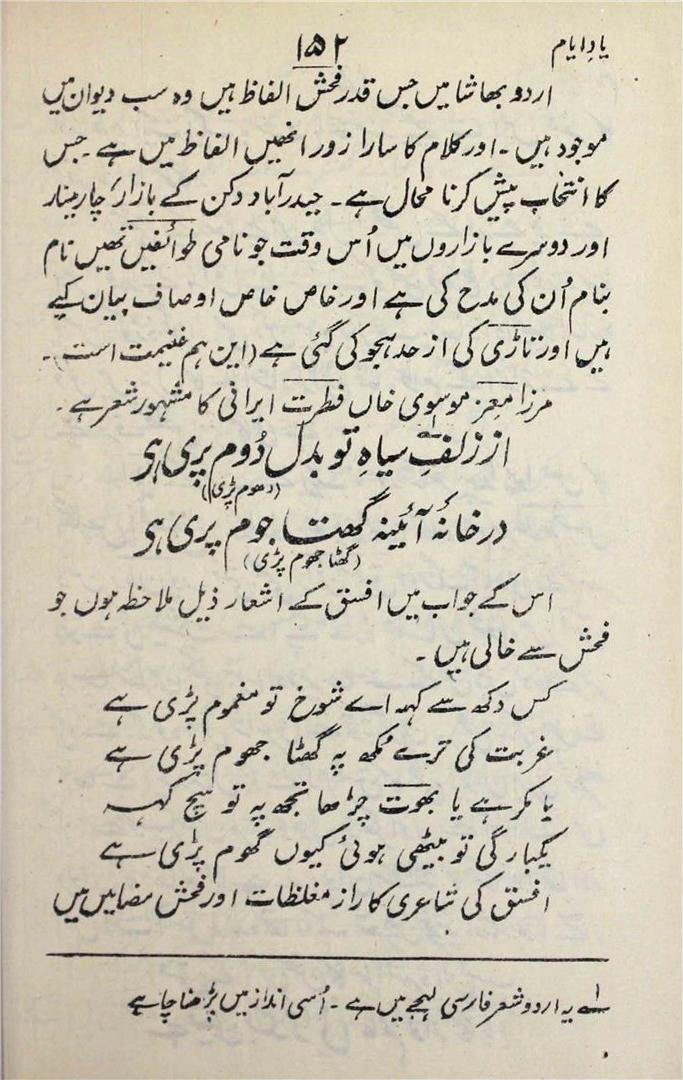 یادِ ایام
۱۵۲
اردو بھاشا میں جس قدر فحش الفاظ ہیں وہ سب دیوان میں
موجود ہیں ۔ اور کلام کا سارا زور انھیں الفاظ میں ہے ۔ جس
کا انتخاب پیش کرنا محال ہے ۔ حیدرآباد دکن کے بازار، چار مینار
اور دوسرے بازاروں میں اُس وقت جو نامی طوائفیں تھیں نام
بنام اُن کی مدح کی ہے اور خاص خاص اوصاف بیان کیے
ہیں اور تاڑی کی از حد ہجو کی گئی ہے (این ہم غنیمت است) ۔
مرزا معز موسوی خاں فطرت ایرانی کا مشہور شعر ہے ۔
از زلفِ سیاہِ تو بدل دُوم پری ہی
(دھوم پڑی)
در خانۂ آئینہ گھتا جوم پری ہی
(گھٹا جھوم پڑی)
اس کے جواب میں افسق کے اشعار ذیل ملاحظہ ہوں جو
فحش سے خالی ہیں ۔
کس دکھ سے کہہ اے شوخ تو مغموم پڑی ہے
غربت کی ترے مُکھ پہ گھٹا جھوم پڑی ہے
یا مکر ہے یا بھوت چڑھا تجھ پہ تو سچ کہہ
یکبارگی تو بیٹھی ہوئی کیوں گھوم پڑی ہے
افسق کی شاعری کا راز مغلظات اور فحش مضامیں میں
۱ یہ اردو شعر فارسی لہجے میں ہے ۔ اُسی انداز میں پڑھنا چاہیے